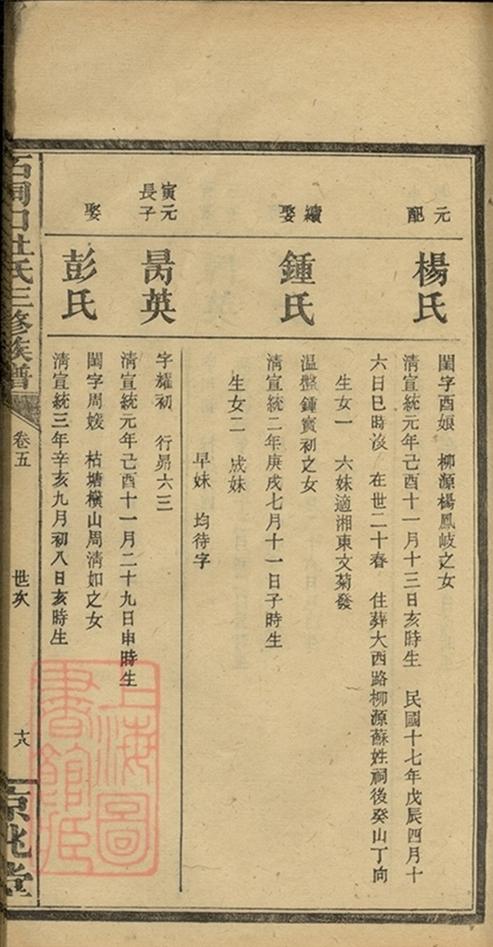 元配
楊氏
閨字酉娘　柳源楊鳳岐之女
淸宣統元年己酉十一月十三日亥時生　民國十七年戊辰四月十
六日巳時沒　在世二十春　住葬大西路柳源蘇姓祠後癸山丁向
生女一　六妹適湘東文菊發
續娶
鍾氏
温盤鍾寅初之女
淸宣統二年庚戌七月十一日子時生
生女二　成妹
早妹　均待字
寅元長子
昺英
字耀初　行昺六三
淸宣統元年己酉十一月二十九日申時生
娶
彭氏
閨字周嫒　枯塘橫山周淸如之女
淸宣統三年辛亥九月初八日亥時生
石洞口杜氏三修族譜
卷五
世次
十八
京兆堂
上海圖
書館藏